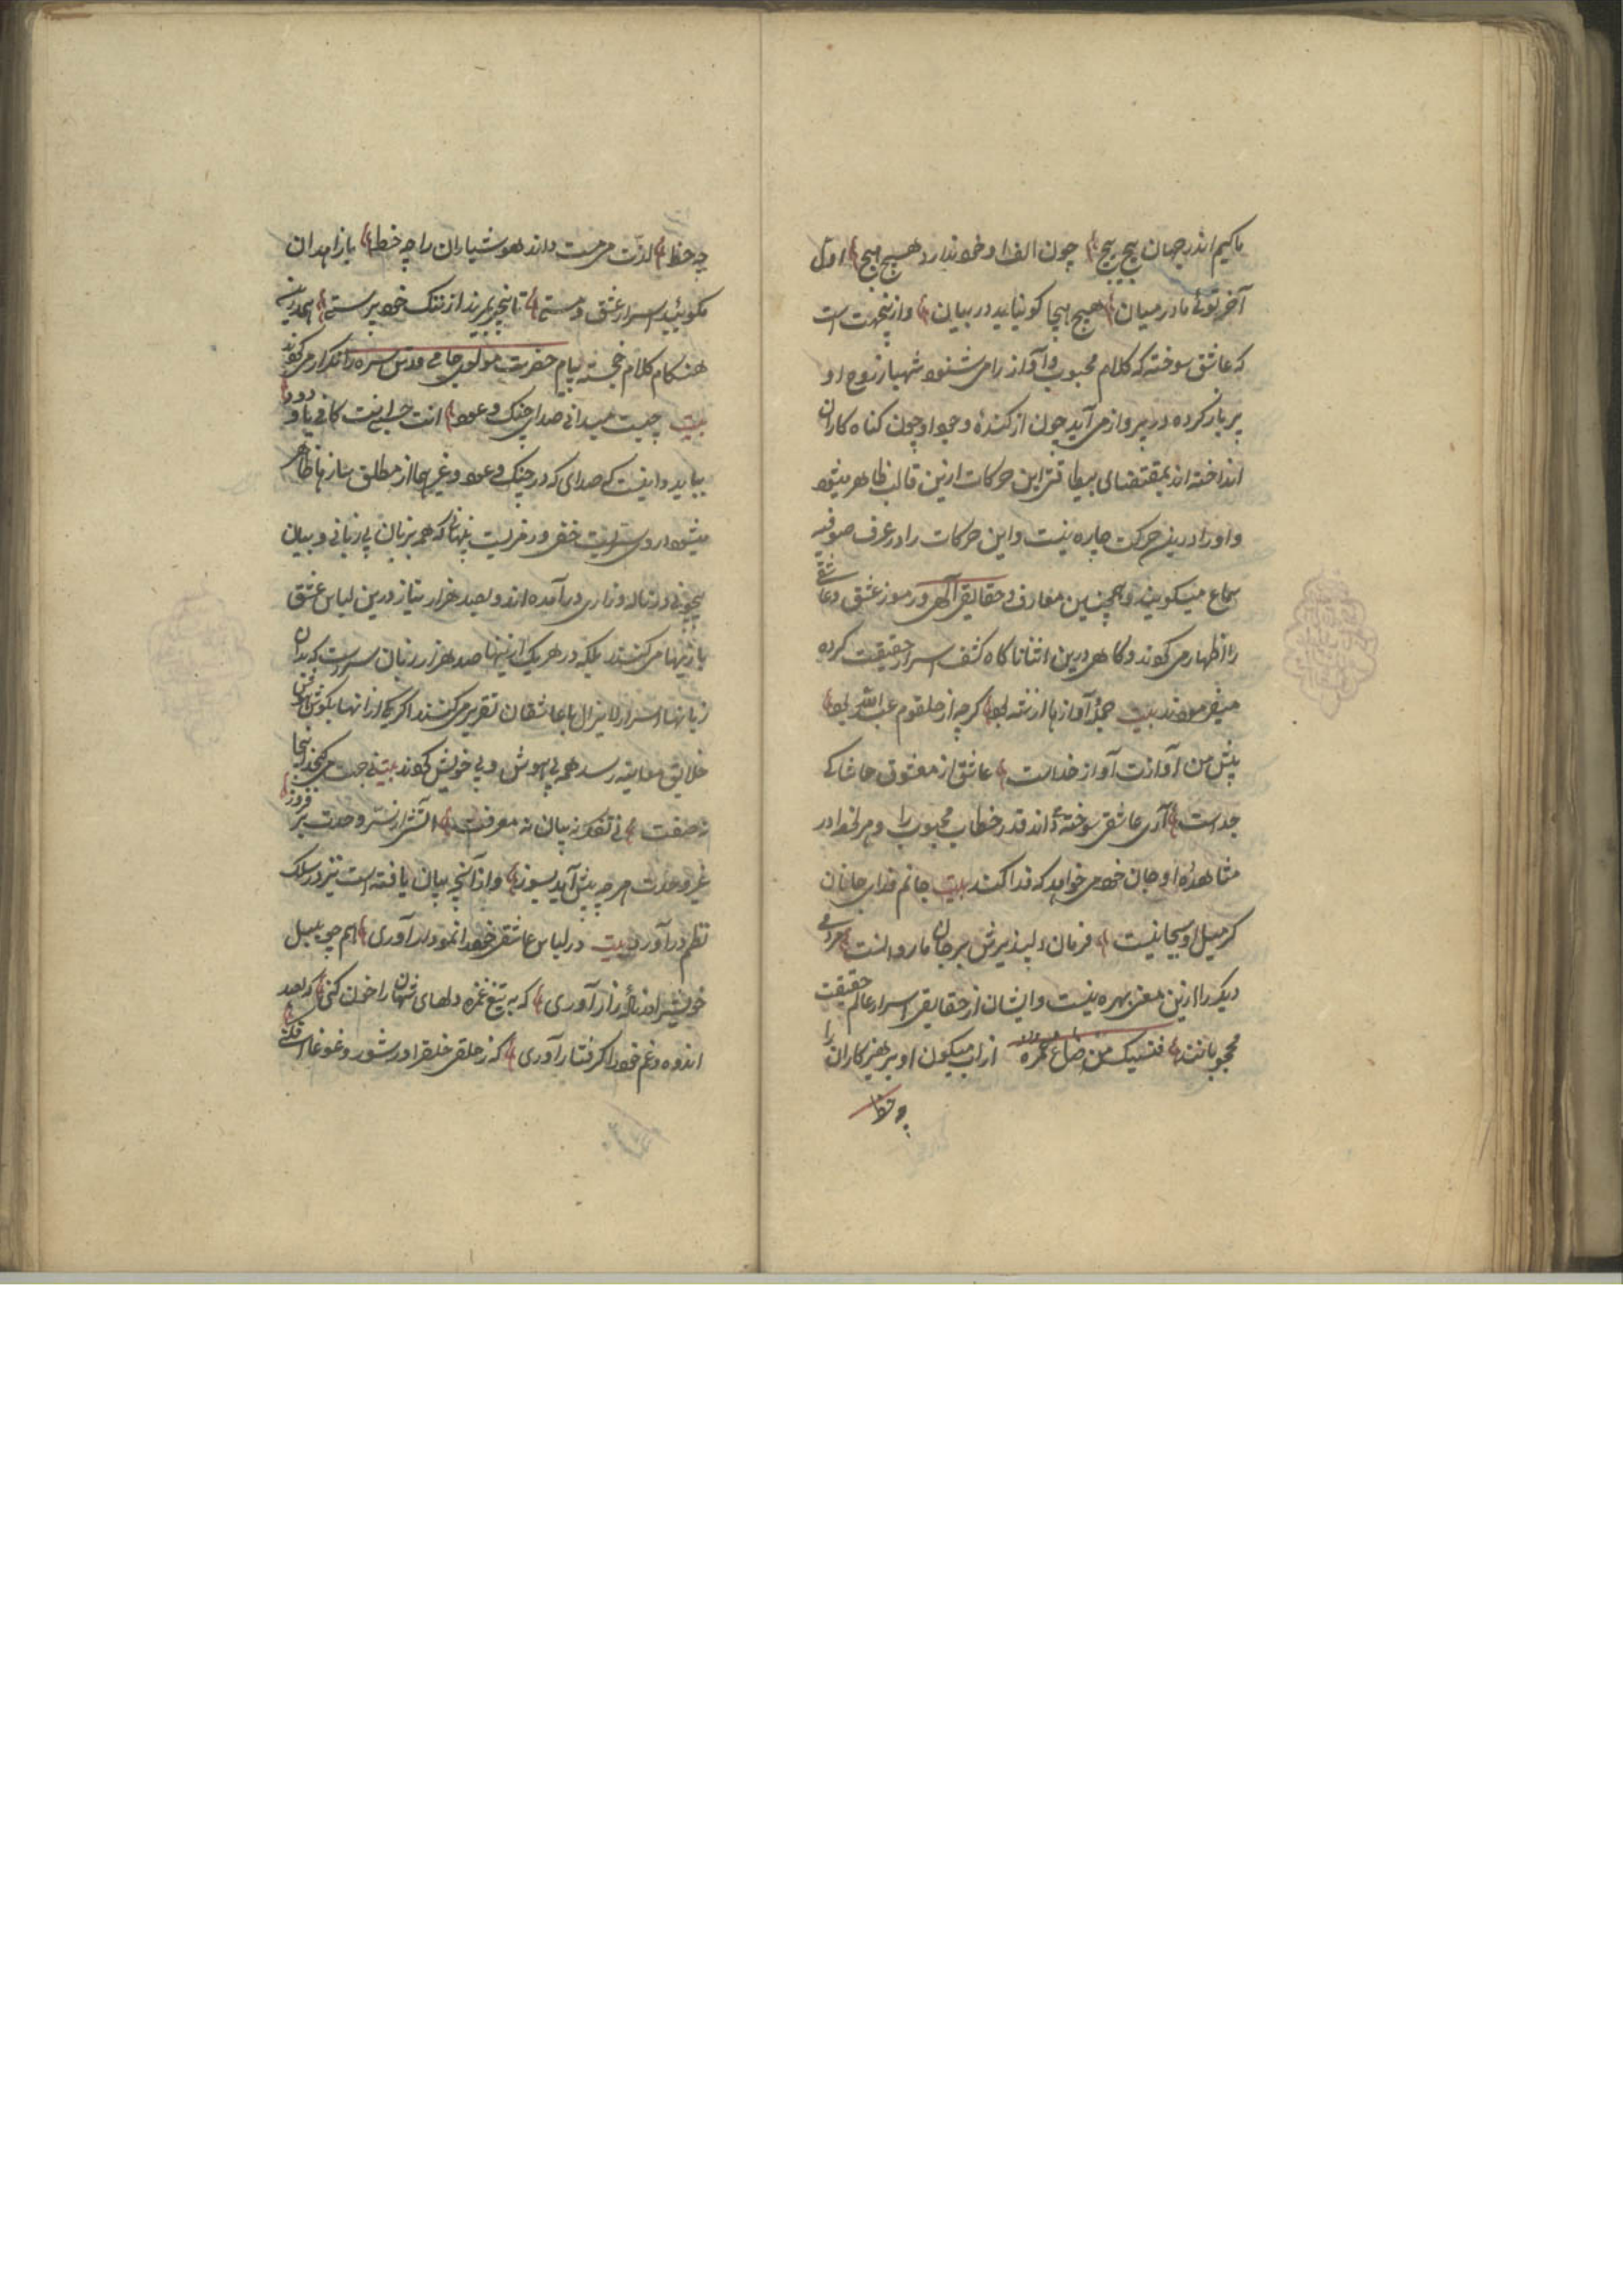 ما کیم اندر جهان پیچ پیچ چون الف او خود ندارد هیچ هیچ اول
آخر توئی ما در میان هیچ هیچا کو نیاید در بیان و ازینجهت است
که عاشق سوخته که کلام محبوب و آواز را می شنود شهباز روح او
پر باز کرده در پرواز می آید چون از کندهٔ وجود او چون کناه کاران
انداخته اند بمقتضای بیطاقتی این حرکات ازین قالب ظاهر میشود
و اورا درین حرکت چاره نیست و این حرکات را در عرف صوفیه
سماع میگویند و همچنین معارف و حقایق الهی و رموز عشق و عاشقی
را اظهار می کوند و کاهی درین اثنا ناکاه کشف اسرار حقیقت کرده
میفرمودند بیت جملهٔ آواز ها از شه بود کرچه از حلقوم عبد الله بود
پیش من آوازت آواز خداست عاشق از معشوق حاشا کے
جداست آری عاشق سوخته داند قدر خطاب محبوب را و هر لحظه در
مشاهدهٔ او جان خود می خواهد که فدا کند بیت جانم فدای جانان
کر میل او بجانیست فرمان دلپذیرش بر جان ما روانست
دیکر را ازین معنی بهره نیست و ایشان از حقایق اسرار عالم حقیقت
محجوبانند من ضاع عمره از لب میکون او پرهیز کاران را
چه حظ
چه حظ لذت می مست داند هوشیاران را چه حظ با زاهدان
مکوئید اسرار عشق و مستی تا بیخبر بمیرند از ننک خود پرستی
هنکام کلام خجسته پیام حضرت مولوی جامی قدس سره را تکرار می کوند
بیت چیست میدانی صدای چنک و عود انت حسبی انت کافی یا ودود
بباید دانست که صدای که در چنک و عود و غیرهما از مطلق ساز ها ظاهر
میشود خفی و رمزیست پنهانی که همه بزبان بی زبانی و بیان
بیچونی در ناله و زاری در آمده اند و بصد هزار نیاز درین لباس عشق
بازیها می کنند بلکه در هر یک ازینها صد هزار زبان سراست که بدان
زبانها اسرار لایزال با عاشقان تقریر می کنند اکر یکی از انها بکوش
خلایق معاینه رسد همه بی هوش و بی خویش کوند بیت نی جهت می کنجد اینجا
نه صفت نی تفکر نه بیان نه معرفت آتشی از سر وحدت بر فروز
غیر وحدت هر چه پیش آید بسوز و از آنچه بیان یافته است نیز در سلک
نظم در آورد بیت در لباس عاشقی خود را نمودار آوری هم چو بلبل
خویش را در نالهٔ زار آوری که به تیغ غمزه دلهای شهان را خون کنی
اندوه و غم خود را کرفتار آوری که ز حلقی خلق را در شور و غوغا